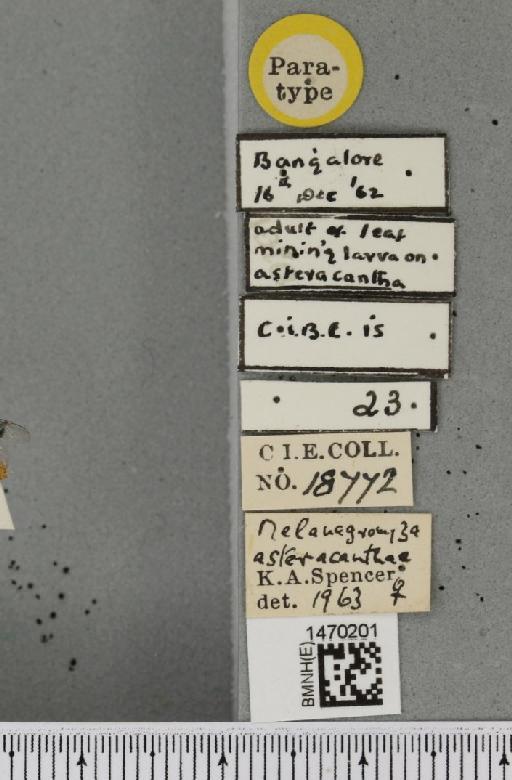 Para-
type
Bangalore
16th Dec '62
adult of leaf
mining larva on
asteracantha
C.I.B.C. is
23.
C I.E.COLL.
NO. 18772
Melanagromyza
asteracanthae
K.A.Spencer ♀
det. 1963
1470201
BMNH(E)